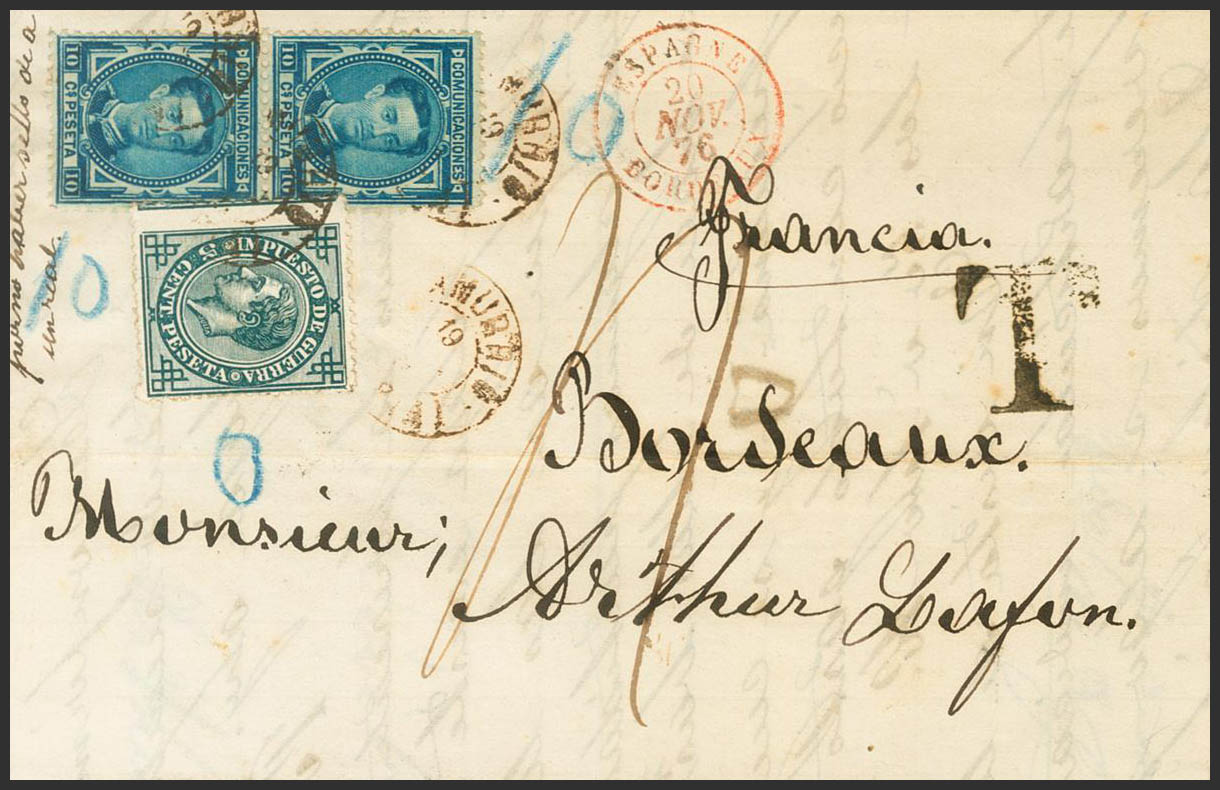 por no haber sello de a
un real.
COMUNICACIONES
10 CS PESETA 10
COMUNICACIONES
10 CS PESETA 10
IMPUESTO DE GUERRA
5 CENTS PESETA
AMURRIO
AMURRIO
19
ESPAGNE
20
NOV.
76
BORDEAUX
0
0
0
Francia.
T
Bordeaux.
Monsieur;
Arthur Lafon.